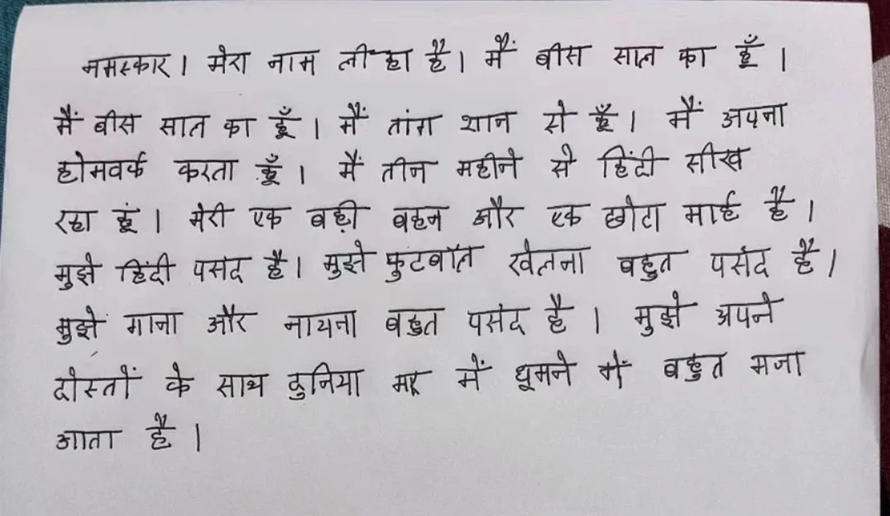 नमस्कार। मेरा नाम ली हा है। मैं बीस साल का हूँ।
मैं बीस सात का हूँ। मैं तांग शान से हूँ। मैं अपना
होमवर्क करता हूँ। मैं तीन महीने से हिंदी सीख
रहा हूं। मेरी एक बड़ी बहन और एक छोटा माई है।
मुझे हिंदी पसंद है। मुझे फुटबॉल खेलना बहुत पसंद है।
मुझे गाना और नायना बहुत पसंद है। मुझे अपने
दोस्तों के साथ दुनिया मर में घूमने में बहुत मजा
आता है।